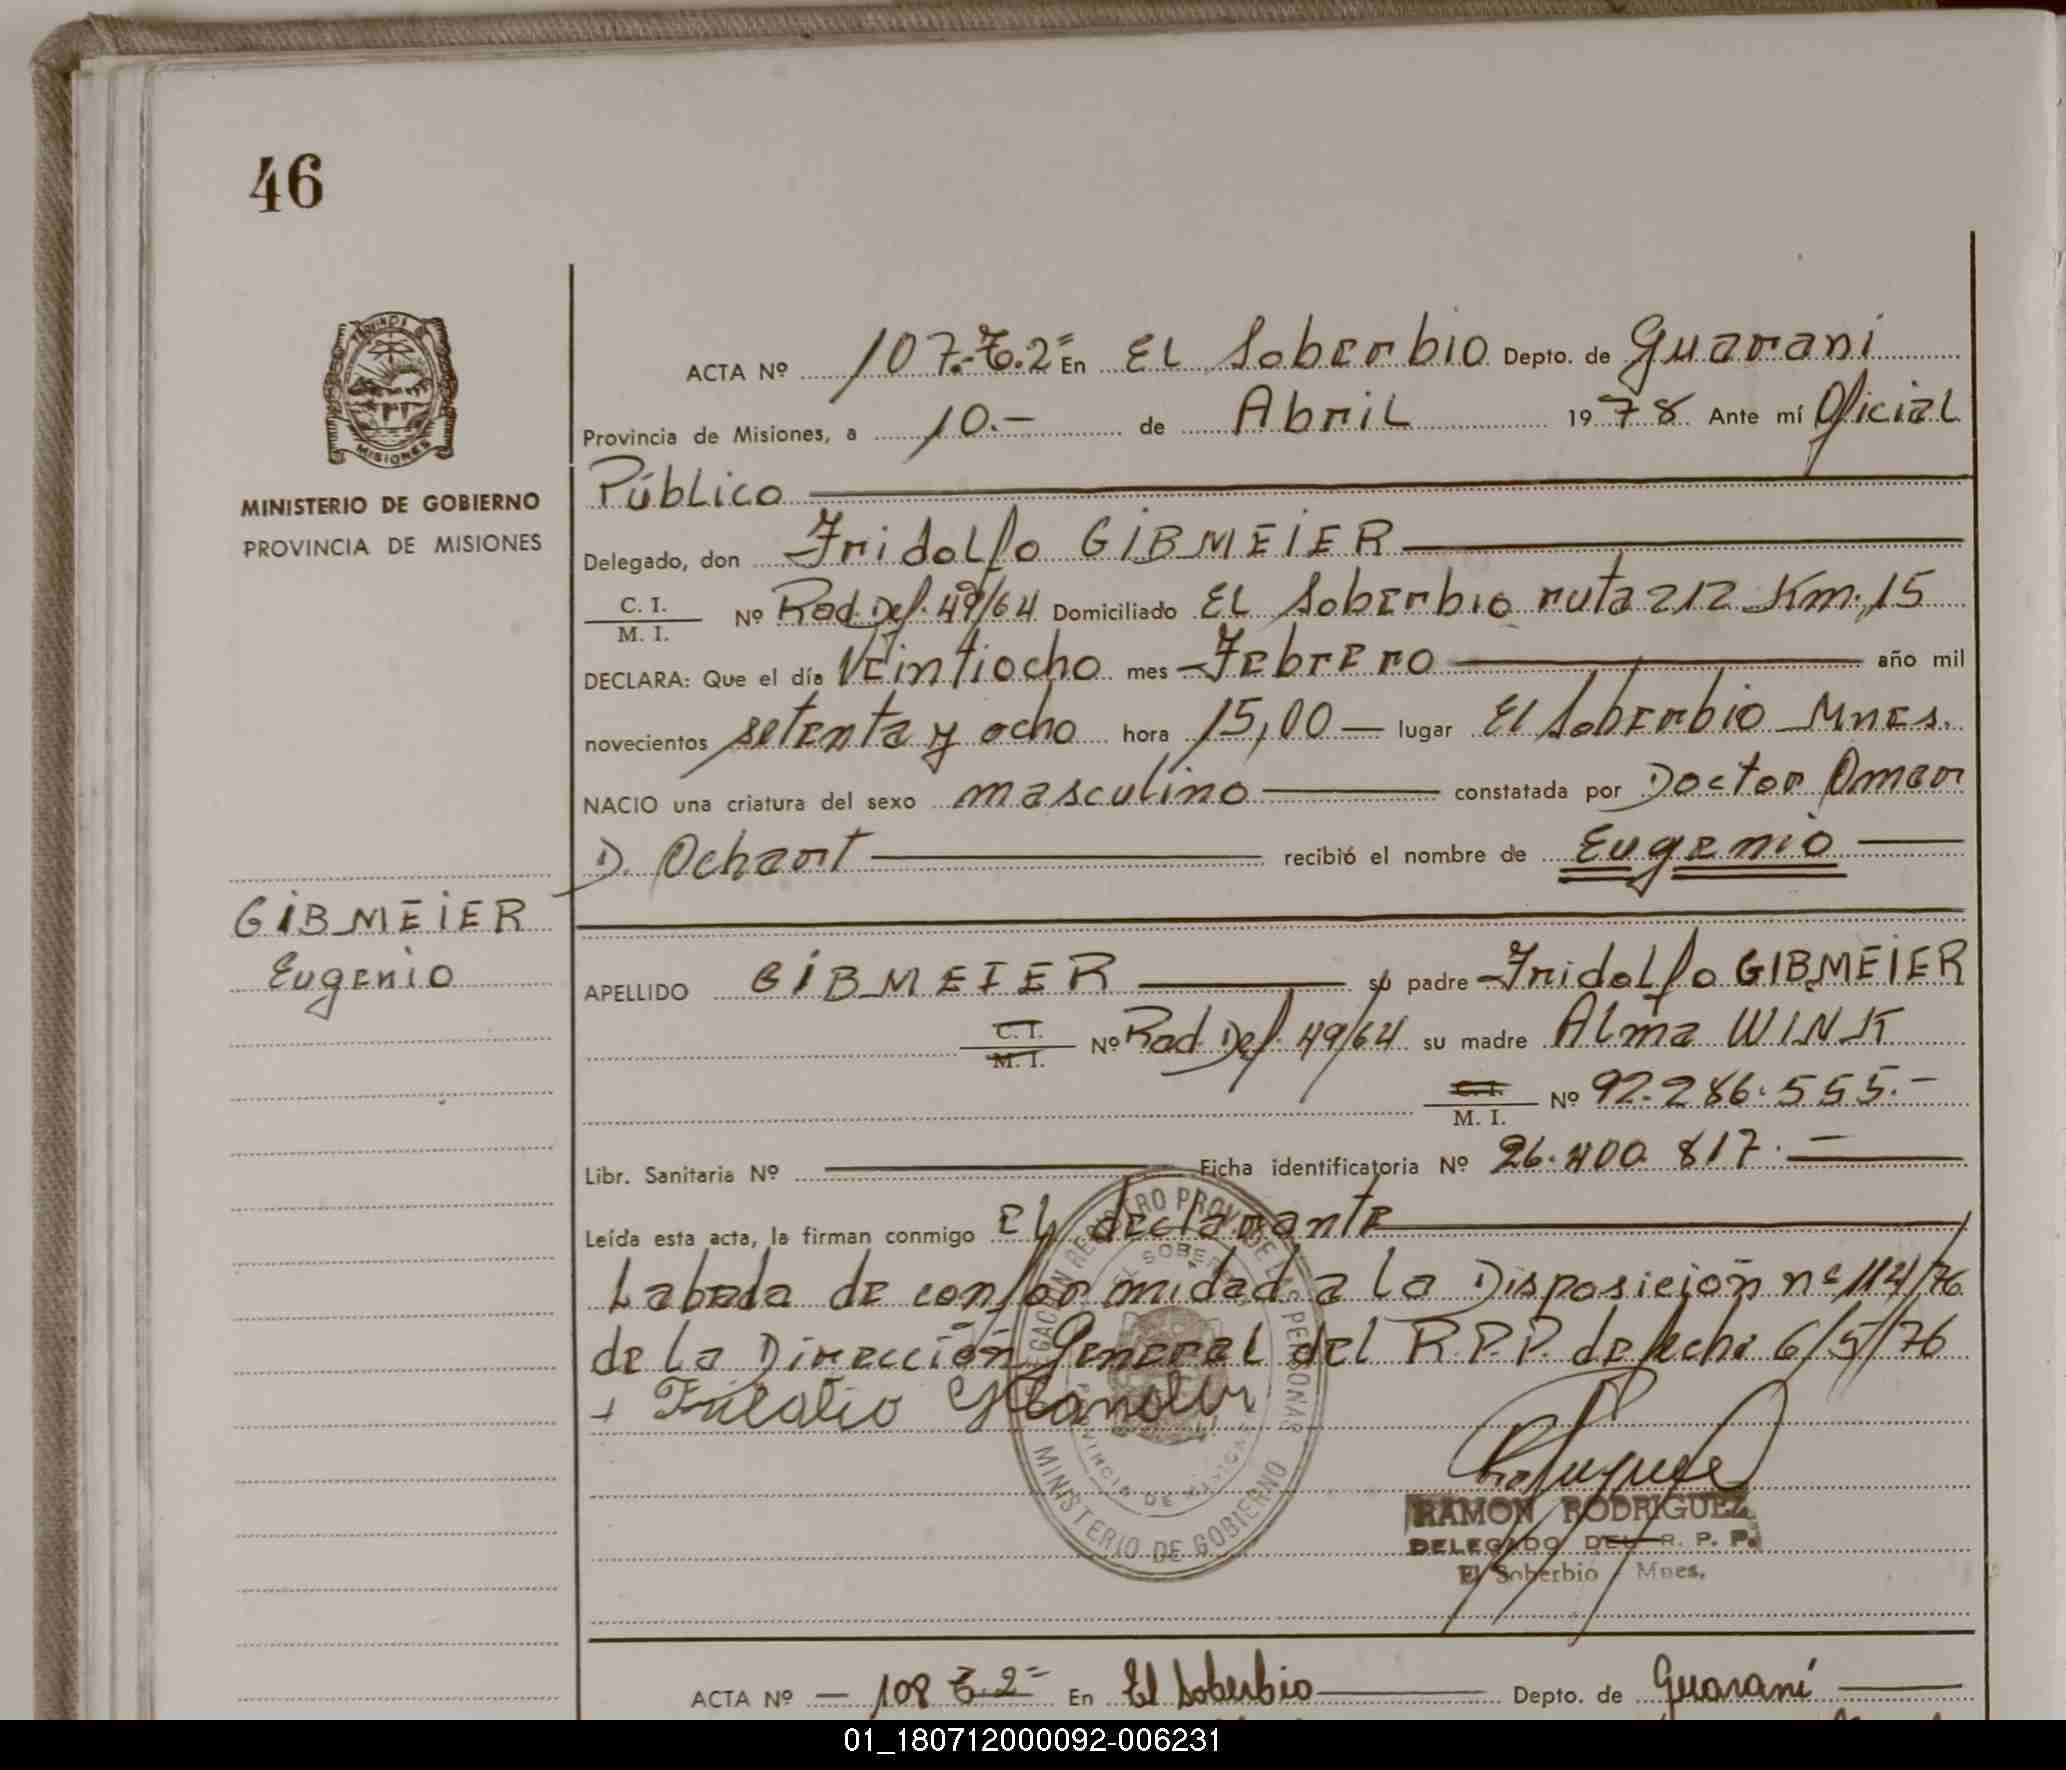 46
PROVINCIA DE
MISIONES
MINISTERIO DE GOBIERNO
PROVINCIA DE MISIONES
ACTA Nº 107.-T.2º En El Soberbio Depto. de Guarani
Provincia de Misiones, a 10.- de Abril 1978 Ante mí Oficial
Público
Delegado, don Fridolfo GIBMEIER
C. I.
M. I. Nº Rad. Def. 49/64 Domiciliado El Soberbio ruta 212 Km. 15
DECLARA: Que el día Veintiocho mes Febrero año mil
novecientos setenta y ocho hora 15,00 lugar El Soberbio Mnes.
NACIO una criatura del sexo masculino constatada por Doctor Omar
D. Ochart recibió el nombre de Eugenio
GIBMEIER
Eugenio
APELLIDO GIBMEIER su padre Fridolfo GIBMEIER
C. I.
M. I. Nº Rad. Def. 49/64 su madre Alma WINK
C. I.
M. I. Nº 92.286.555.-
Libr. Sanitaria Nº Ficha identificatoria Nº 26.400.817.
Leída esta acta, la firman conmigo el declarante
Labrada de conformidad a la Disposición nº 114/76
de la Dirección General del R.P.P. de fecha 6/5/76
REGISTRO PROV. DE LAS PERSONAS
EL SOBERBIO
PROVINCIA DE MISIONES
MINISTERIO DE GOBIERNO
RAMON RODRIGUEZ
DELEGADO DEL R. P. P.
El Soberbio - Mnes.
ACTA Nº 108 T.2º En El Soberbio Depto. de Guaraní
01_180712000092-006231